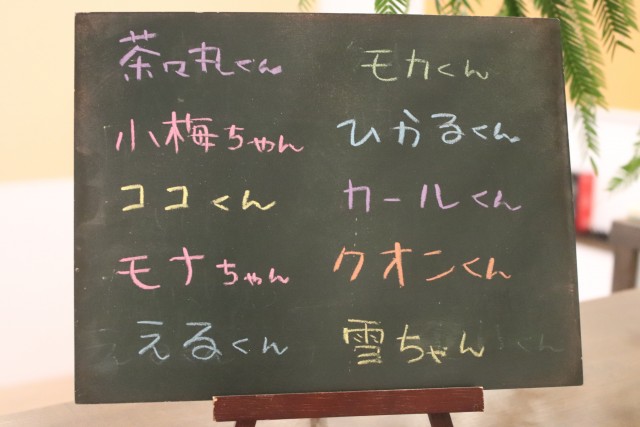 茶々丸くん
小梅ちゃん
ココくん
モナちゃん
えるくん
モカくん
ひかるくん
カールくん
クオンくん
雪ちゃん